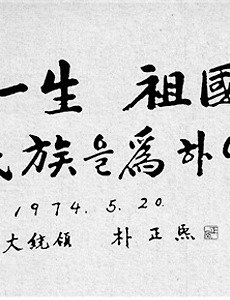 一生 祖國
民族을爲하
1974. 5. 20.
大統領 朴正熙